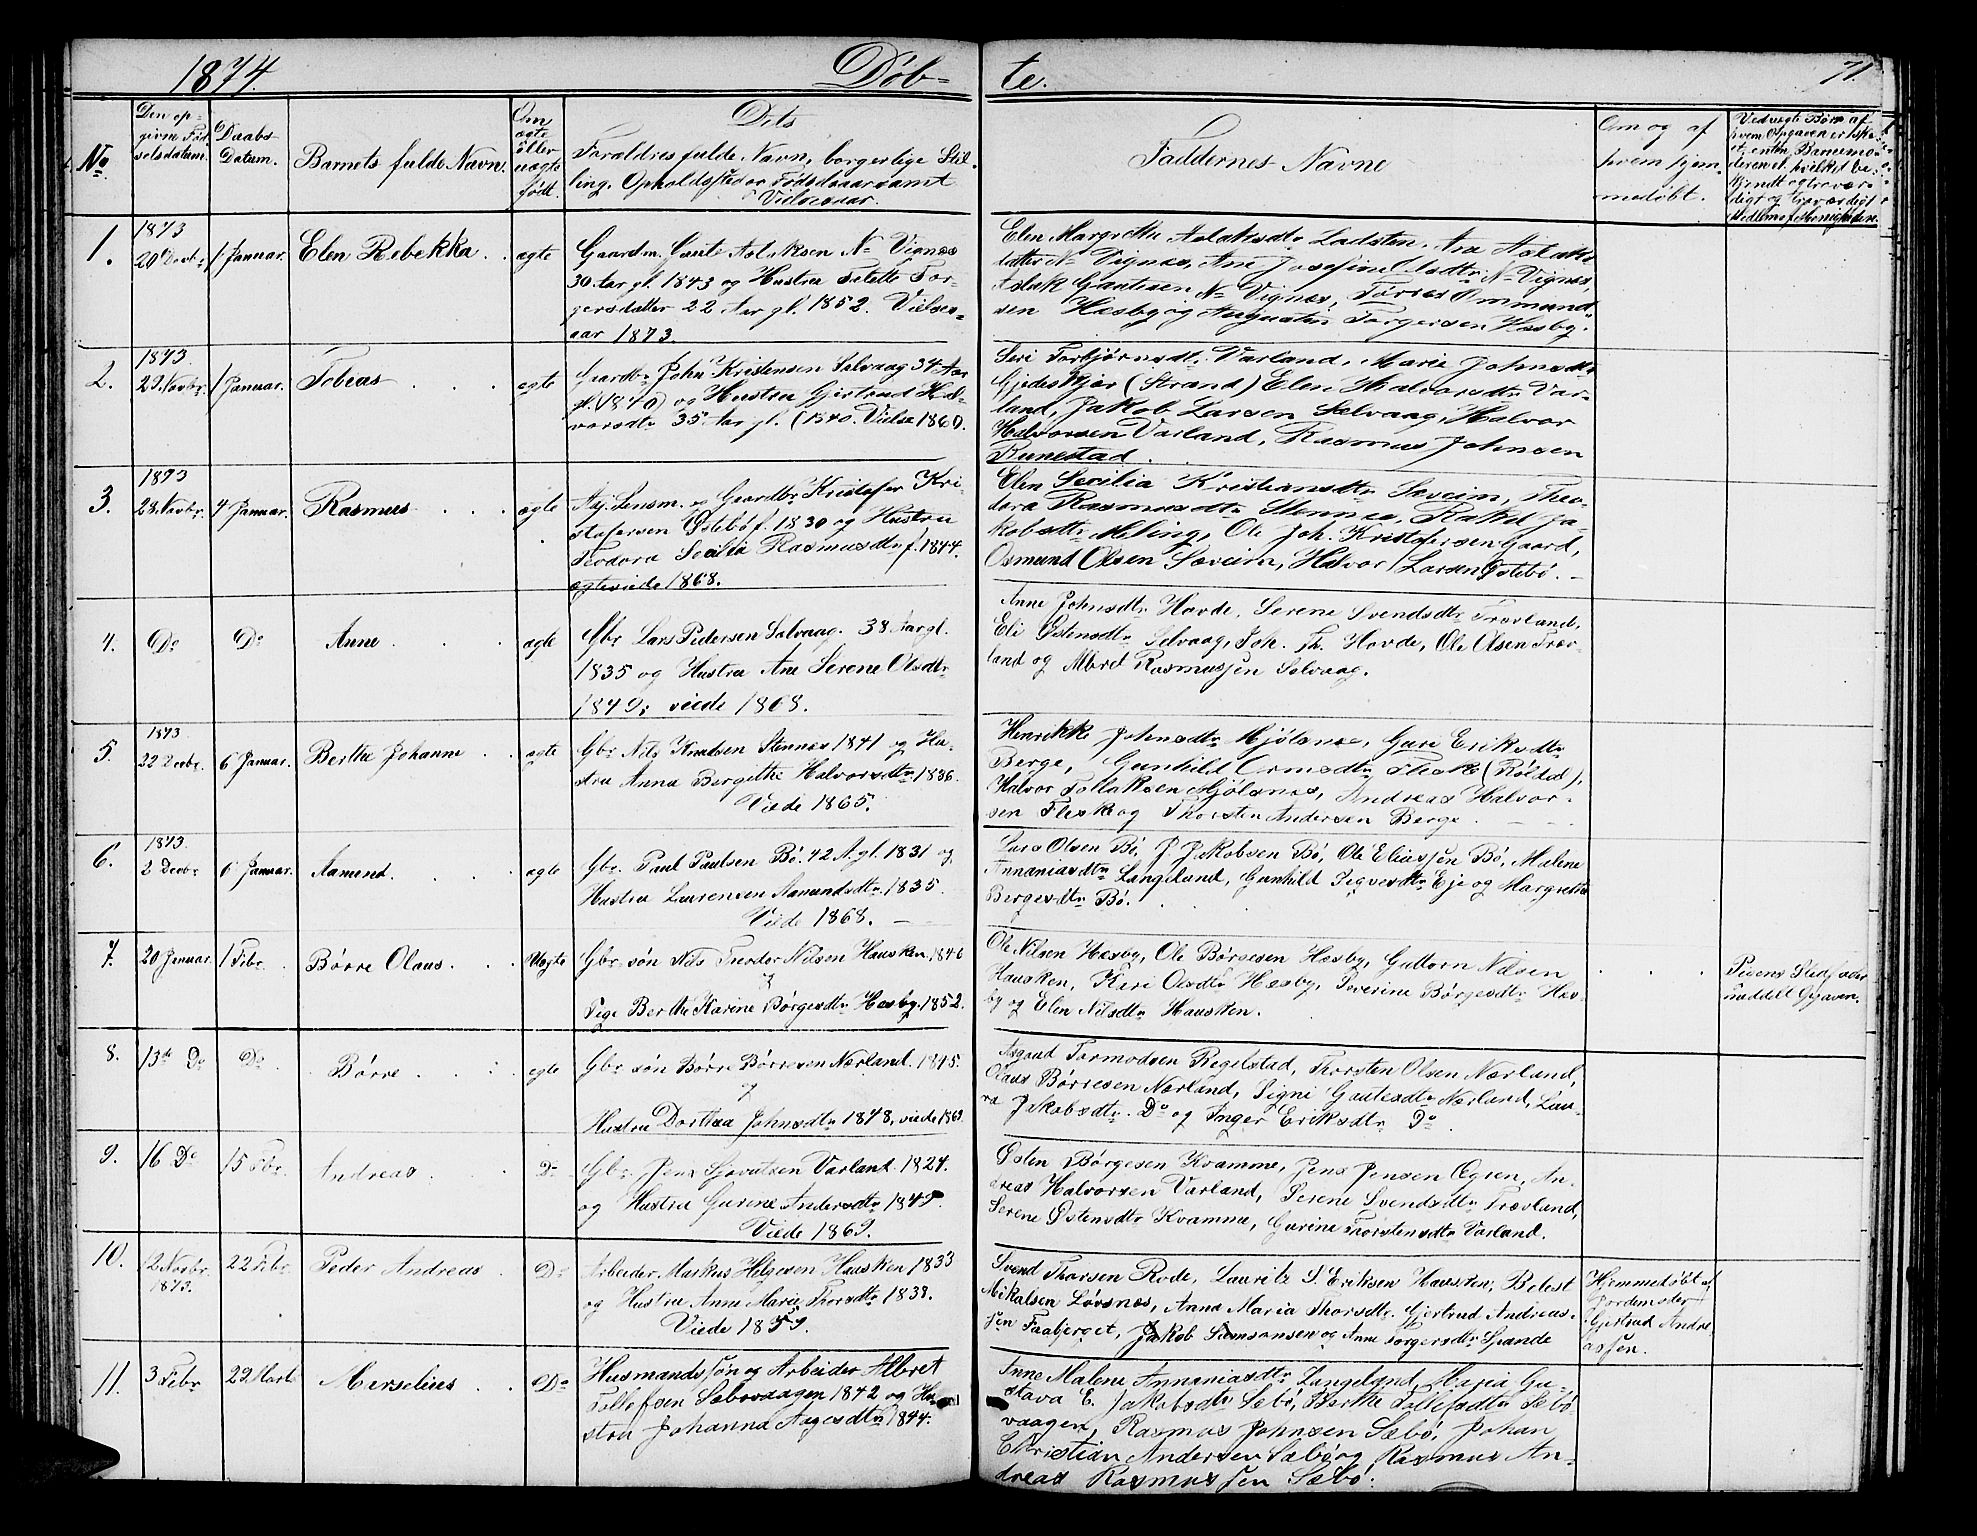 1874. Døb- te. 71.
No.
Den op-
givne Fød-
selsdatum.
Daabs-
Datum.
Barnets fulde Navn.
Om
ægte
eller
uægte
født.
Dets
Forældres fulde Navn, borgerlige Stil-
ling, Opholdssted og Fødselsaar samt
Vielsesaar.
Faddernes Navne
Om og af
hvem hjem-
medøbt.
Ved uægte Børn af
hvem Opgaven er ske-
et, enten Barnemo-
deren el. hvilket be-
kjendt og troværdigt
Medlem af Menigheden.
1. 1873 20 Decbr. 1 Januar. Elen Rebekka. ægte
Gaardm. Gaute Aslaksen N. Vignes
30 Aar gl. 1843 og Hustru Tolette Tor-
gersdatter 22 Aar gl. 1852. Vielses-
aar 1873.
Elen Margrethe Aslaksdtr. Ladsten, Ana Aslaks-
datter N. Vignes, Ane Josefine Olsdtr. N. Vignes,
Aslak Gautesen N. Vignes, Tørres Ommund-
sen Hæsby og Augustin Torgersen Hæsby.
2. 1873. 29. Novbr. 1 Januar. Tobias ægte
Gaardbr. John Kristensen Selvaag 34 Aar
gl. (1840) og Hustru Gjertrud Hal-
vorsdtr. 35 Aar gl. (1840. Vielse 1860.
Siri Torbjørnsdtr. Varland, Marie Johnsdtr.
Gjedeskjær (Strand) Elen Halvorsdtr. Var-
land, Jakob Larsen Selvaag, Halvor
Halvorsen Varland, Rasmus Johnsen
Runestad.
3. 1873 28. Novbr. 4 Januar. Rasmus ægte
Aij. Lensm. og Gaardbr. Kristofer Kri-
stofersen Østebø f. 1830 og Hustru
Teodora Secilia Rasmusdtr. f. 1844.
ægteviede 1868.
Elen Secilia Kristiansdtr. Sæveim, Theo-
dora Rasmusdtr. Stennes, Rakel Ja-
kobsdtr. Meling, Ole Joh. Kristofersen Gaard,
Osmund Olsen Sæveim, Halvor Larsen Østebø.
4. Do Do Anne ægte
Gbr. Lars Pedersen Selvaag. 38 Aar gl.
1835 og Hustru Ane Serene Olsdtr.
1849; viede 1868.
Anne Johnsdtr. Hovde, Serene Svendsdtr. Trovland,
Eli Østensdtr. Selvaag, Joh. Th. Hovde, Ole Olsen Trov-
land og Mard Rasmussen Selvaag.
5. 1873. 22 Decbr. 6 Januar. Bertha Johanne ægte
Gbr. Nils Knudsen Stennes 1841 og Hu-
stru Anna Bergithe Halvorsdtr. 1836.
Viede 1865.
Henrikke Johnsdtr. Mjølsnes, Guri Eriksdtr.
Berge, Gunhild Ormsdtr. Fleske (Røldal),
Halvor Tollaksen Mjølsnes, Andreas Halvor-
sen Fleske og Thorsten Andersen Berge.
6. 1873. 2 Decbr. 6 Januar. Aamund. ægte
Gbr. Paul Paulsen Bø. 42 A. gl. 1831 og
Hustru Laurensen Aamundsdtr. 1835.
Viede 1868.
Lars Olsen Bø, J. Jakobsen Bø, Ole Eliassen Bø, Malene
Annaniasdtr. Langeland, Gunhild Sigvesdtr. Eje og Margrethe
Bergesdtr. Bø.
7. 20 Januar. 1 Febr. Børre Olaus. Uægte
Gbr. søn Nils Theodor Nilsen Hausken 1846
og
Pige Berthe Karine Børgesdtr. Hæsby. 1852.
Ole Nilsen Hæsby, Ole Børgesen Hæsby, Guttorm Nilsen
Hausken, Kari Olsdtr. Hæsby, Severine Børgesdtr. Hæs-
by og Elen Nilsdtr. Hausken.
Pigens Stedfader
meddelt Opgaven.
8. 13de Do Do Børre ægte
Gbr. søn Børre Børresen Nærland. 1845.
og
Hustru Dorthea Johnsdtr. 1848, viede 1869.
Asgaud Tormodsen Regelstad, Thorsten Olsen Nærland,
Olaus Børresen Nærland, Signi Gautesdtr. Nærland, Lau-
ra Jakobsdtr. Do og Inger Eriksdtr. Do.
9. 16 Do 15 Febr. Andreas Do
Gbr. Jens Sjovatsen Varland. 1824.
og Hustru Gurine Andersdtr. 1849.
Viede 1869.
Østen Børgesen Kvamme, Jens Jensen Ogsen, An-
dreas Halvorsen Varland, Serene Svendsdtr. Trovland,
Serene Østensdtr. Kvamme, Gurine Thorstensdtr. Varland.
10. 12 Novbr. 1873. 22 Febr. Peder Andreas Do
Arbeider Markus Helgesen Hausken 1833
og Hustru Anne Marie Thorsdtr. 1838.
Viede 1859.
Svend Thorsen Rode, Lauritz S. Eriksen Hausken, Belest
Mikalsen Løvsnes, Anna Maria Thorsdtr. Gjertrud Andreas-
sen Faabjerget, Jakob Simonsen og Anne Torgersdtr. Spande
Hjemmedøbt af
Jordemoder
Gjertrud Andre-
assen.
11. 3 Febr. 29 Marts Merselius Do
Husmandssøn og Arbeider Albret
Tollefsen Sebøvaagen 1842 og Hu-
stru Johanna Aagesdtr. 1844.
Anne Malene Annaniasdtr. Langeland, Maria Gu-
stava E. Jakobsdtr. Sebø, Berthe Tollefsdtr. Sebø-
vaagen, Rasmus Johnsen Sebø, Johan
Christian Andersen Sæbø og Rasmus An-
dreas Rasmussen Sæbø.